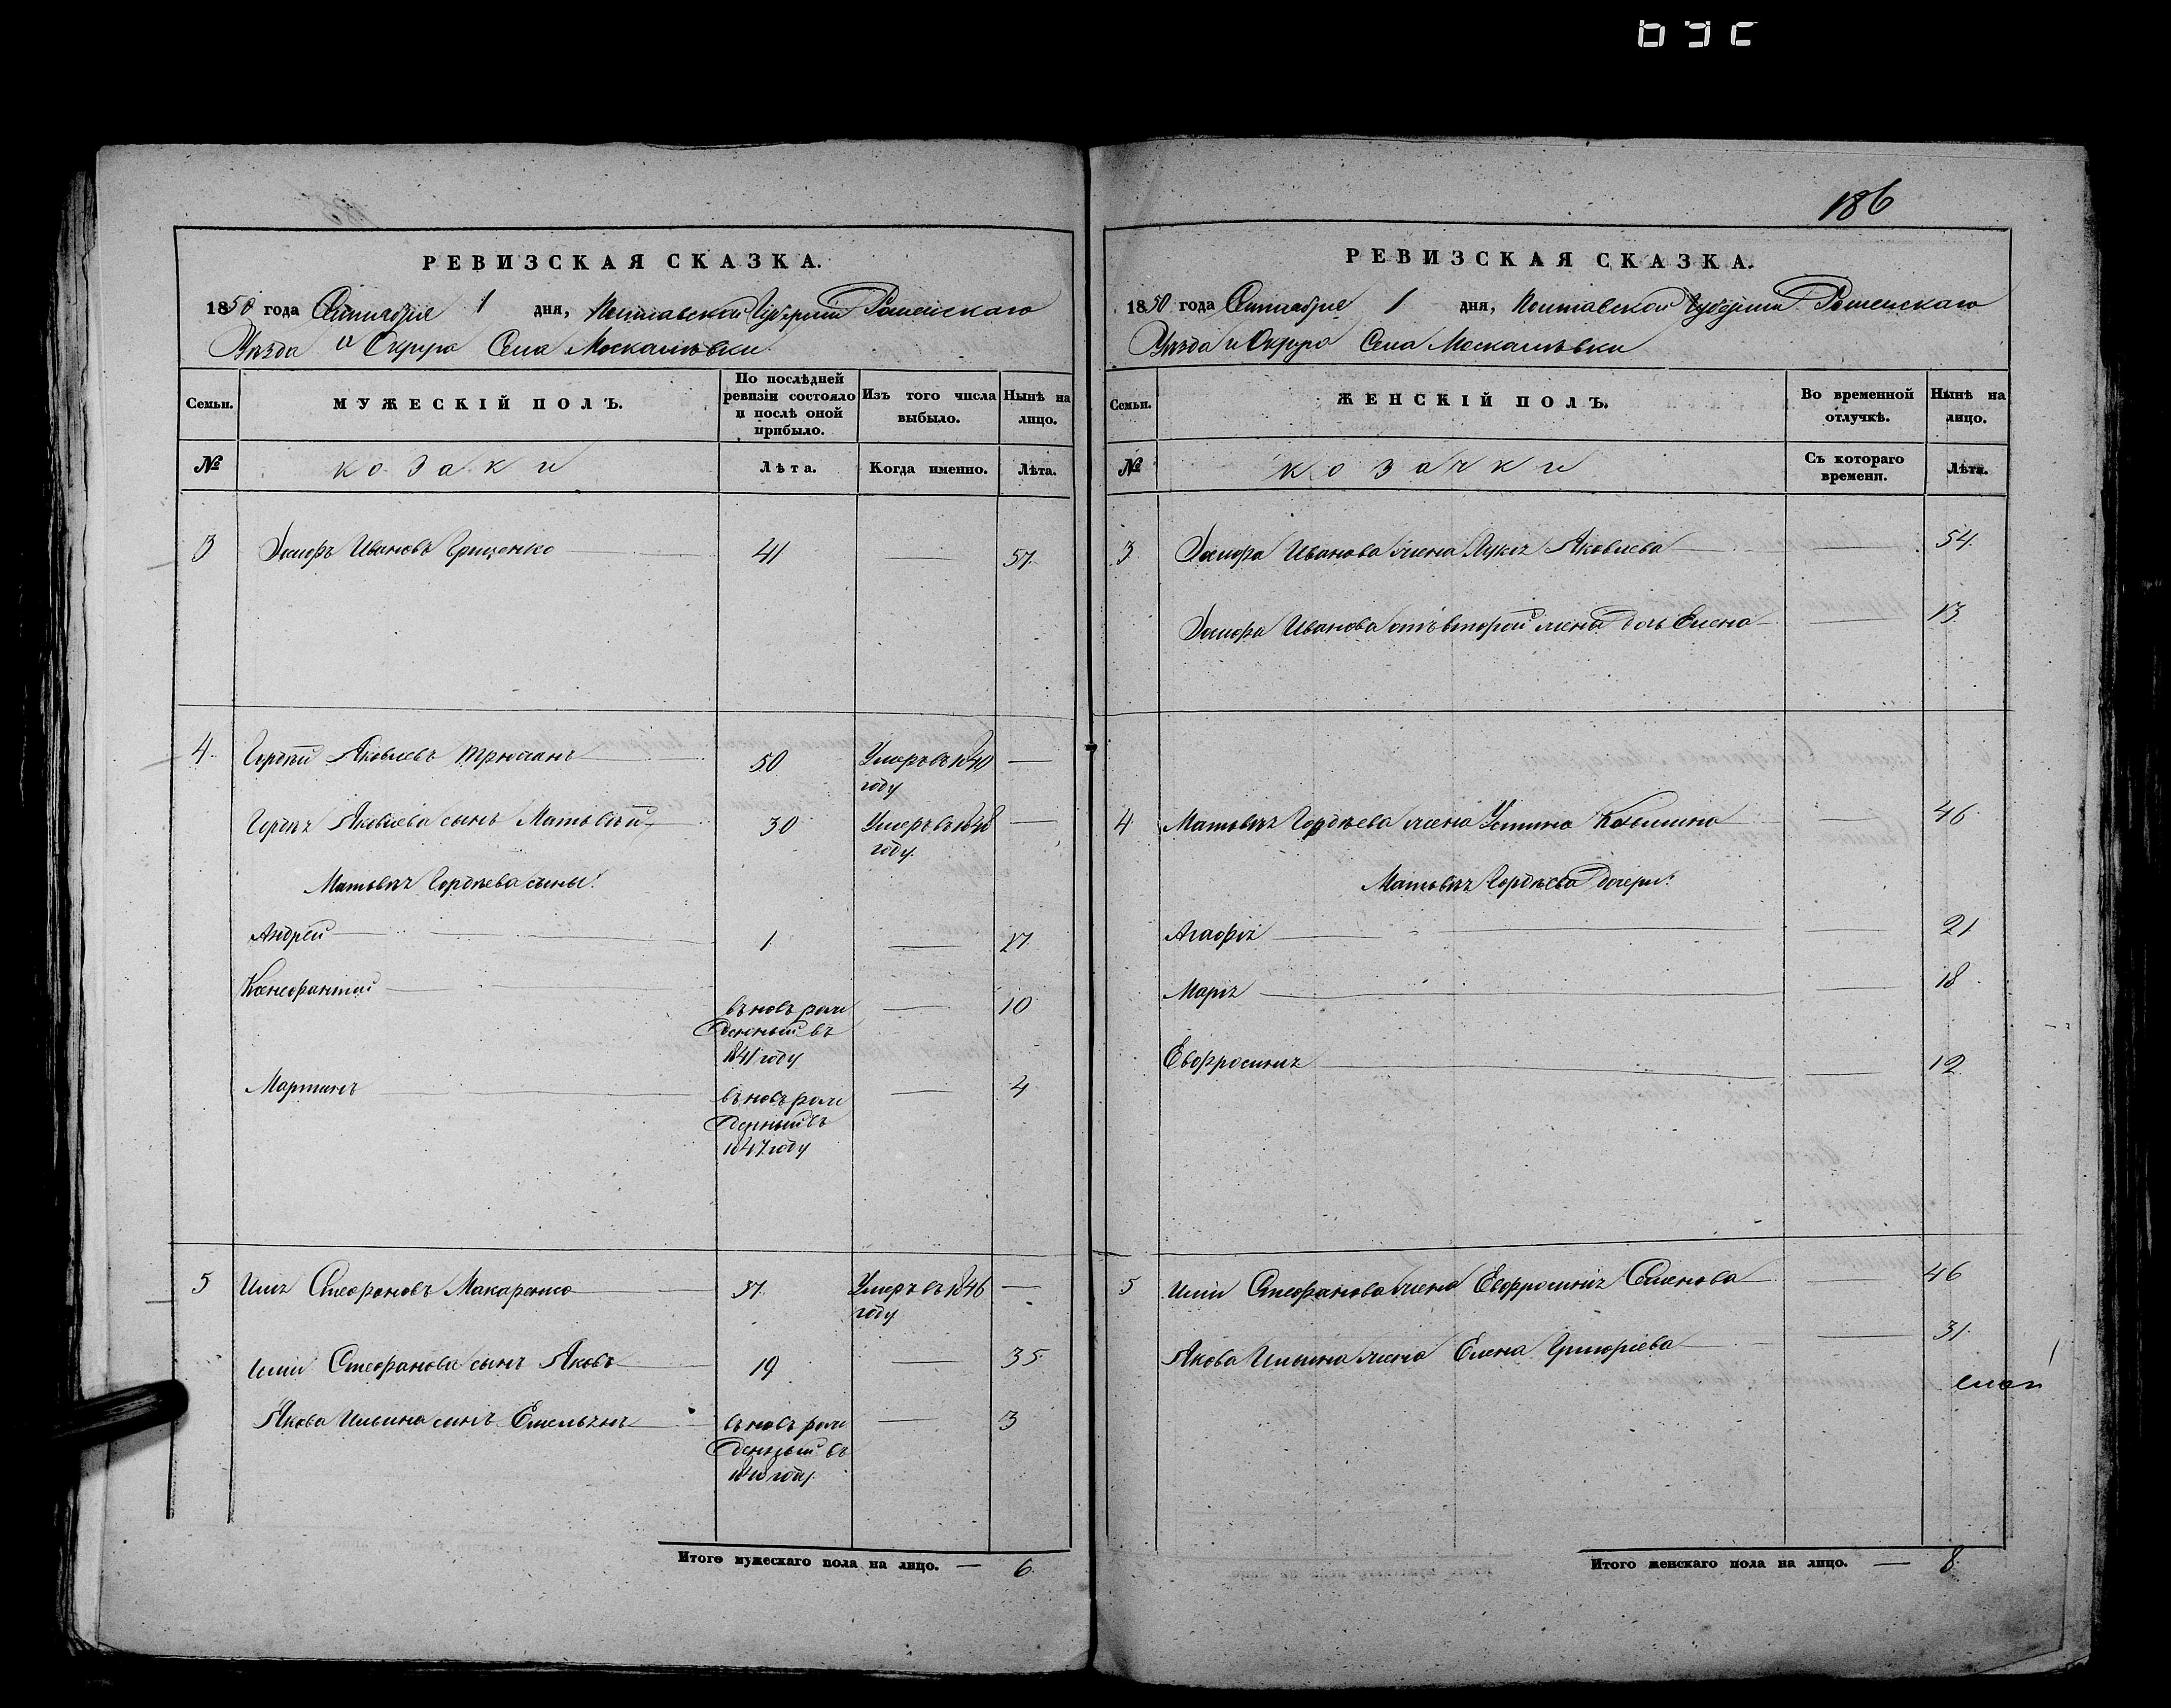 186
РЕВИЗСКАЯ СКАЗКА.
1850 года Сентября 1 дня, Полтавской Губерніи Роменскаго
Уѣзда и Округа Села Москалевки
Семьи.
МУЖЕСКІЙ ПОЛЪ.
По послѣдней ревизіи состояло и послѣ оной прибыло.
Изъ того числа выбыло.
Нынѣ на лицо.
№
козаки
Лѣта.
Когда именно.
Лѣта.
3 Іосифъ Ивановъ Грищенко 41 — 57.
4. Гордѣй Яковлевъ 50 Умеръ въ 1840 —
году
Гордѣя Яковлева сынъ Матьвѣй 30 Умеръ въ 1848 —
году.
Матьвѣя Гордѣева сыны:
Андрей 1. — 17
Ксенофонтий — 10
въновь рож
денный въ
1841 году
Мартинъ — 4
въновь рож
денный въ
1847 году
5 Илія Стефановъ Макаренко 37. Умеръ въ 1846 —
году
Иліи Стефанова сынъ Яковъ 19 — 35.
Якова Ильина сынъ Емельянъ въновь рож — 3
денный въ
году.
Итого мужескаго пола на лицо. — 6.
РЕВИЗСКАЯ СКАЗКА.
1850 года Сентября 1 дня, Полтавской Губерніи Роменскаго
Уѣзда и Округа Села Москалевки
Семьи.
ЖЕНСКІЙ ПОЛЪ.
Во временной отлучкѣ.
Нынѣ на лицо.
№
козачки
Съ котораго времени.
Лѣта.
3. Іосифа Иванова жена Яковлева — 54.
Іосифа Иванова отъ второй жены дочь Елена — 13.
4 Матьвѣя Гордѣева жена Устина Козьмина — 46.
Матьвѣя Гордѣева дочери:
Агафія — 21
Марія — 18
Евфросинія — 12
5 Иліи Стефанова жена Евфросинія Семенова — 46
Якова Ильина жена Елена Григоріева — 31.
Итого женскаго пола на лицо. — 8.